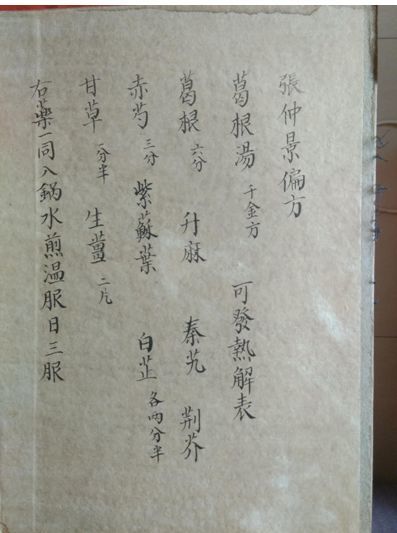 張仲景偏方
葛根湯 千金方 可發熱解表
葛根 六分 升麻 秦艽 荆芥
赤芍 三分 紫蘇葉 白芷 各两分半
甘草 一分半 生薑 二片
右藥一同入鍋水煎温服日三服